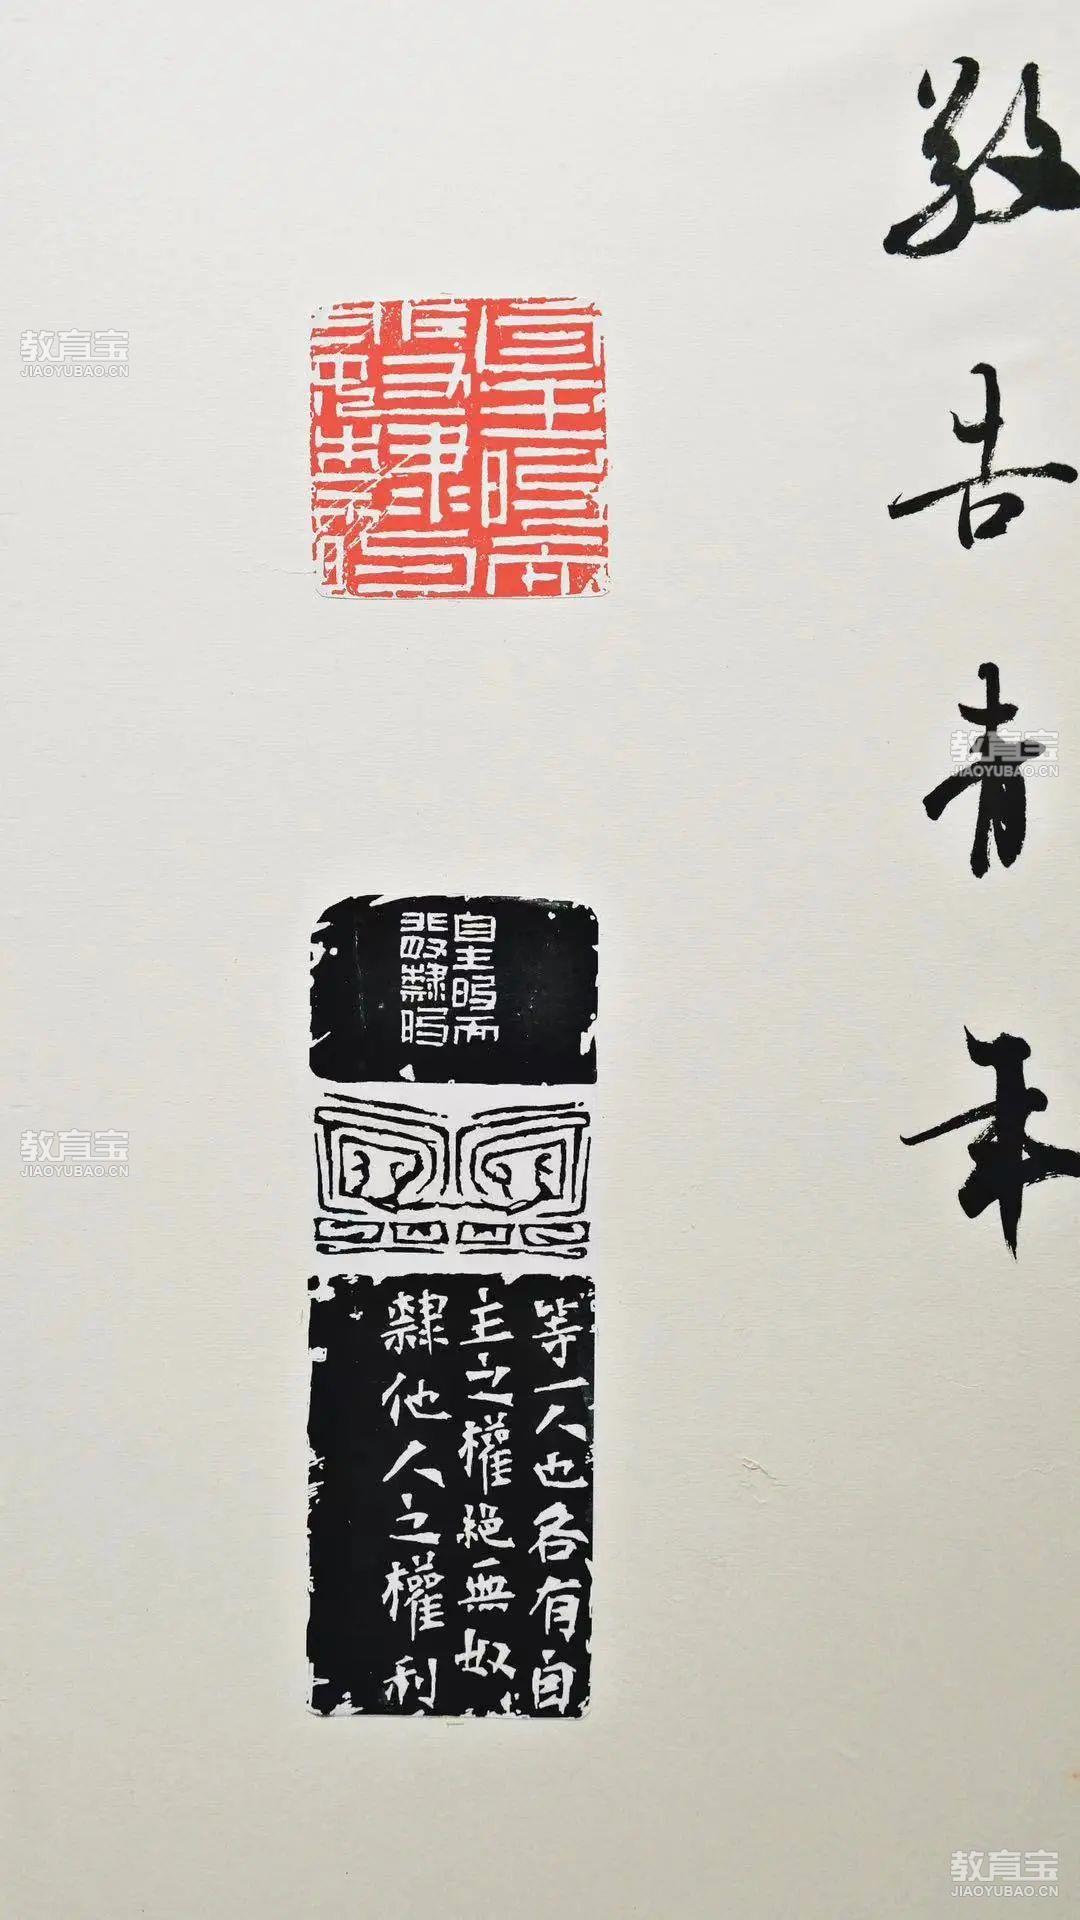 敬告青年
自主旳而
非奴隸旳
自主旳而
非奴隸旳
等一人也各有自
主之權絕無奴
隸他人之權利
教育宝
JIAOYUBAO.CN
教育宝
JIAOYUBAO.CN
教育宝
JIAOYUBAO.CN
教育宝
JIAOYUBAO.CN